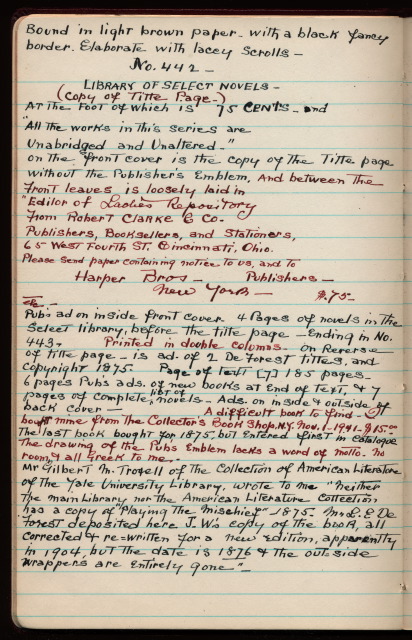 Bound in light brown paper - with a black fancy
border. Elaborate with lacey scrolls -
No. 442 -
LIBRARY OF SELECT NOVELS -
(Copy of Title Page -)
At the Foot of which is 75 CENTS - and
"All the works in this series are
Unabridged and Unaltered -"
on the front cover is the copy of the Title page
without the Publisher's Emblem, And between the
front leaves is loosely laid in
"Editor of Ladies Repository
From Robert Clarke & Co-
Publishers, Booksellers, and Stationers,
65 West Fourth St. Cincinnati, Ohio.
Please send paper containing notice to us, and to
Harper Bros - Publishers -
New York -
$.75-
Pub's ad on inside front cover 4 Pages of novels in the
Select library, before the title page - Ending in No.
443- Printed in double columns - on Reverse
of title page - is ad. of 2 De Forest titles, and
Copyright 1875. Page of text [7] 185 pages -
6 pages Pubs ads. of new books at End of text, & 7
pages of complete list of novels - Ads. on inside & outside of
back cover - A difficult book to find - I
bought mine from the Collector's Book Shop, N.Y. Nov. 1-1941 - $15.00
The last book bought for 1875, but Entered first in Catalogue
The drawing of the Pubs Emblem lacks a word of motto. No
room, & all Greek to me!
Mr Gilbert M. Troxell of the Collection of American Literature
of the Yale University Library, wrote to me "neither
the main Library nor the American Literature Collection
has a copy of "Playing the Mischief" 1875. Mr L. E De
Forest deposited here J. W's copy of the book, all
corrected & re=written for a new edition, apparently
in 1904, but the date is 1876 & the outside
wrappers are Entirely gone" -